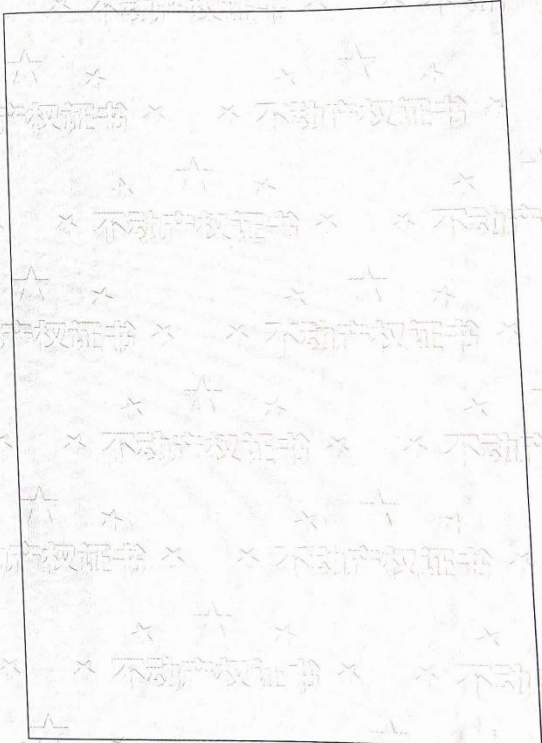 不动产权证书
产权证书 不动产权证书
不动产权证书 不动产
产权证书 不动产权证书
不动产权证书 不动产
产权证书 不动产权证书
不动产权证书 不动